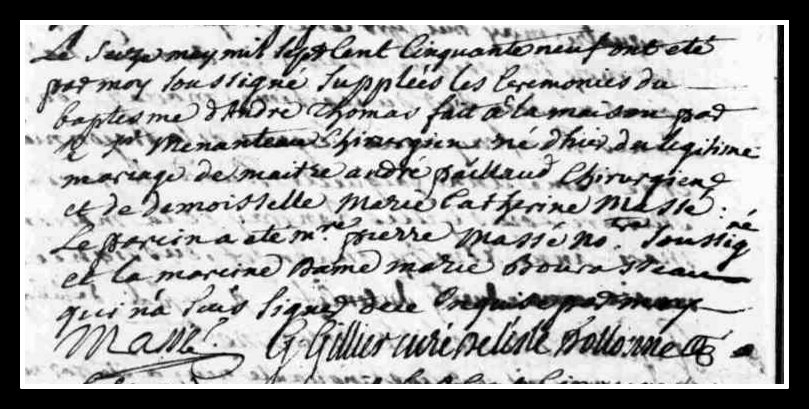 Le Seize may mil Sept Cent Cinquante neuf ont eté
par moy Soussigné Suppleés les Ceremonies du
baptesme d'André Thomas fait a la maison par
Menanteau Chirurgien né d'hier du legitime
mariage de maitre andré paillaud Chirurgien
et de demoisselle Marie Catherine Massé :
Le parein a eté mre pierre Massé nore Soussigné
et la mareine Dame marie Bourasseau
qui n'a Signer de ce Enquise par moy
Massé G Gillier curé De l'isle D'ollonne